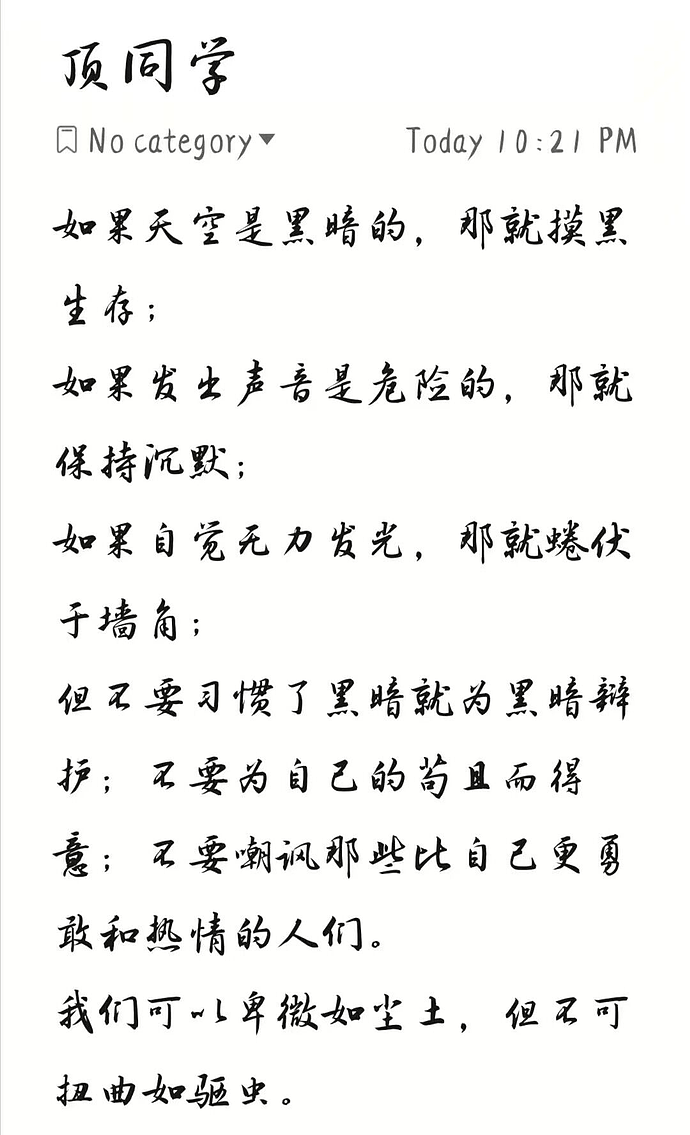 顶同学
No category Today 10:21 PM
如果天空是黑暗的，那就摸黑
生存；
如果发出声音是危险的，那就
保持沉默；
如果自觉无力发光，那就蜷伏
于墙角；
但不要习惯了黑暗就为黑暗辩
护；不要为自己的苟且而得
意；不要嘲讽那些比自己更勇
敢和热情的人们。
我们可以卑微如尘土，但不可
扭曲如驱虫。